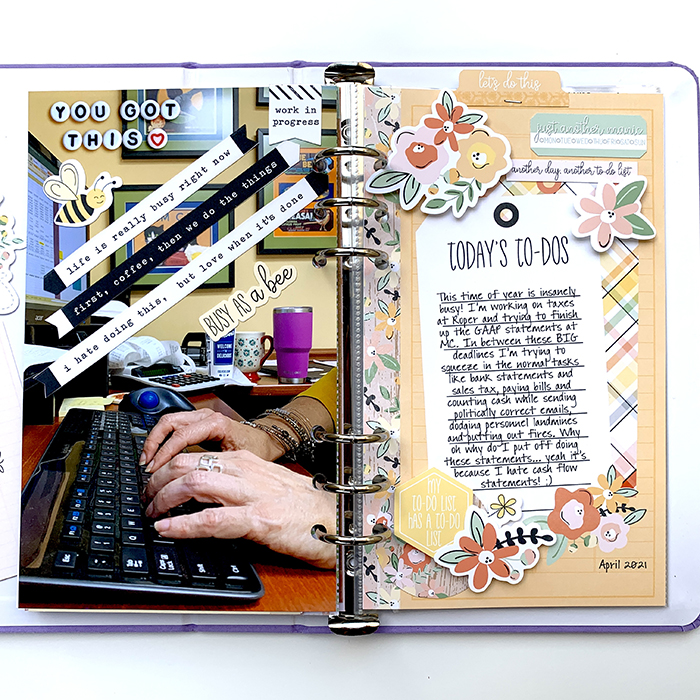 YOU GOT
THIS
work in
progress
life is really busy right now
first, coffee, then we do the things
i hate doing this, but love when it's done
BUSY AS a bee
let's do this
just another manic
MON TUE WED THU FRI SAT SUN
another day, another to do list
TODAY'S TO-DOS
This time of year is insanely
busy! I'm working on taxes
at Roper and trying to finish
up the GAAP statements at
MC. In between these BIG
deadlines I'm trying to
squeeze in the normal tasks
like bank statements and
sales tax, paying bills and
counting cash while sending
politically correct emails,
dodging personnel landmines
and putting out fires. Why
oh why do I put off doing
these statements... yeah it's
because I hate cash flow
statements! ;)
MY
TO-DO LIST
HAS A TO-DO
LIST
April 2021